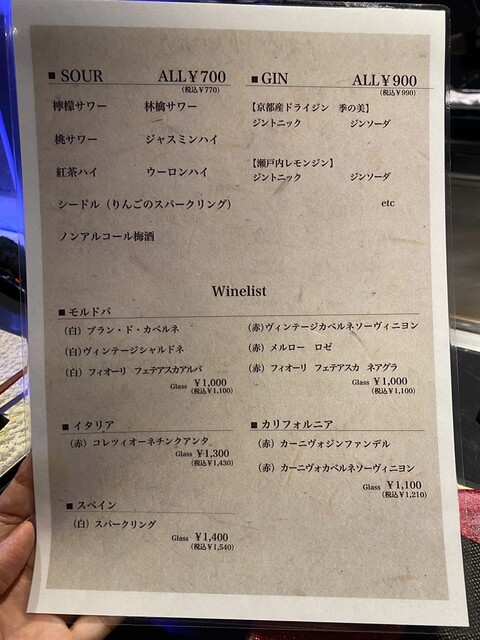 ■ SOUR ALL￥700
(税込￥770)
檸檬サワー 林檎サワー
桃サワー ジャスミンハイ
紅茶ハイ ウーロンハイ
シードル（りんごのスパークリング）
ノンアルコール梅酒
■ GIN ALL￥900
(税込￥990)
【京都産ドライジン 季の美】
ジントニック ジンソーダ
【瀬戸内レモンジン】
ジントニック ジンソーダ
etc
Winelist
■ モルドバ
（白）ブラン・ド・カベルネ
（白）ヴィンテージシャルドネ
（白）フィオーリ フェテアスカアルバ
Glass ￥1,000
(税込￥1,100)
（赤）ヴィンテージカベルネソーヴィニヨン
（赤）メルロー ロゼ
（赤）フィオーリ フェテアスカ ネアグラ
Glass ￥1,000
(税込￥1,100)
■ イタリア
（赤）コレツィオーネチンクアンタ
Glass ￥1,300
(税込￥1,430)
■ カリフォルニア
（赤）カーニヴォジンファンデル
（赤）カーニヴォカベルネソーヴィニヨン
Glass ￥1,100
(税込￥1,210)
■ スペイン
（白）スパークリング
Glass ￥1,400
(税込￥1,540)